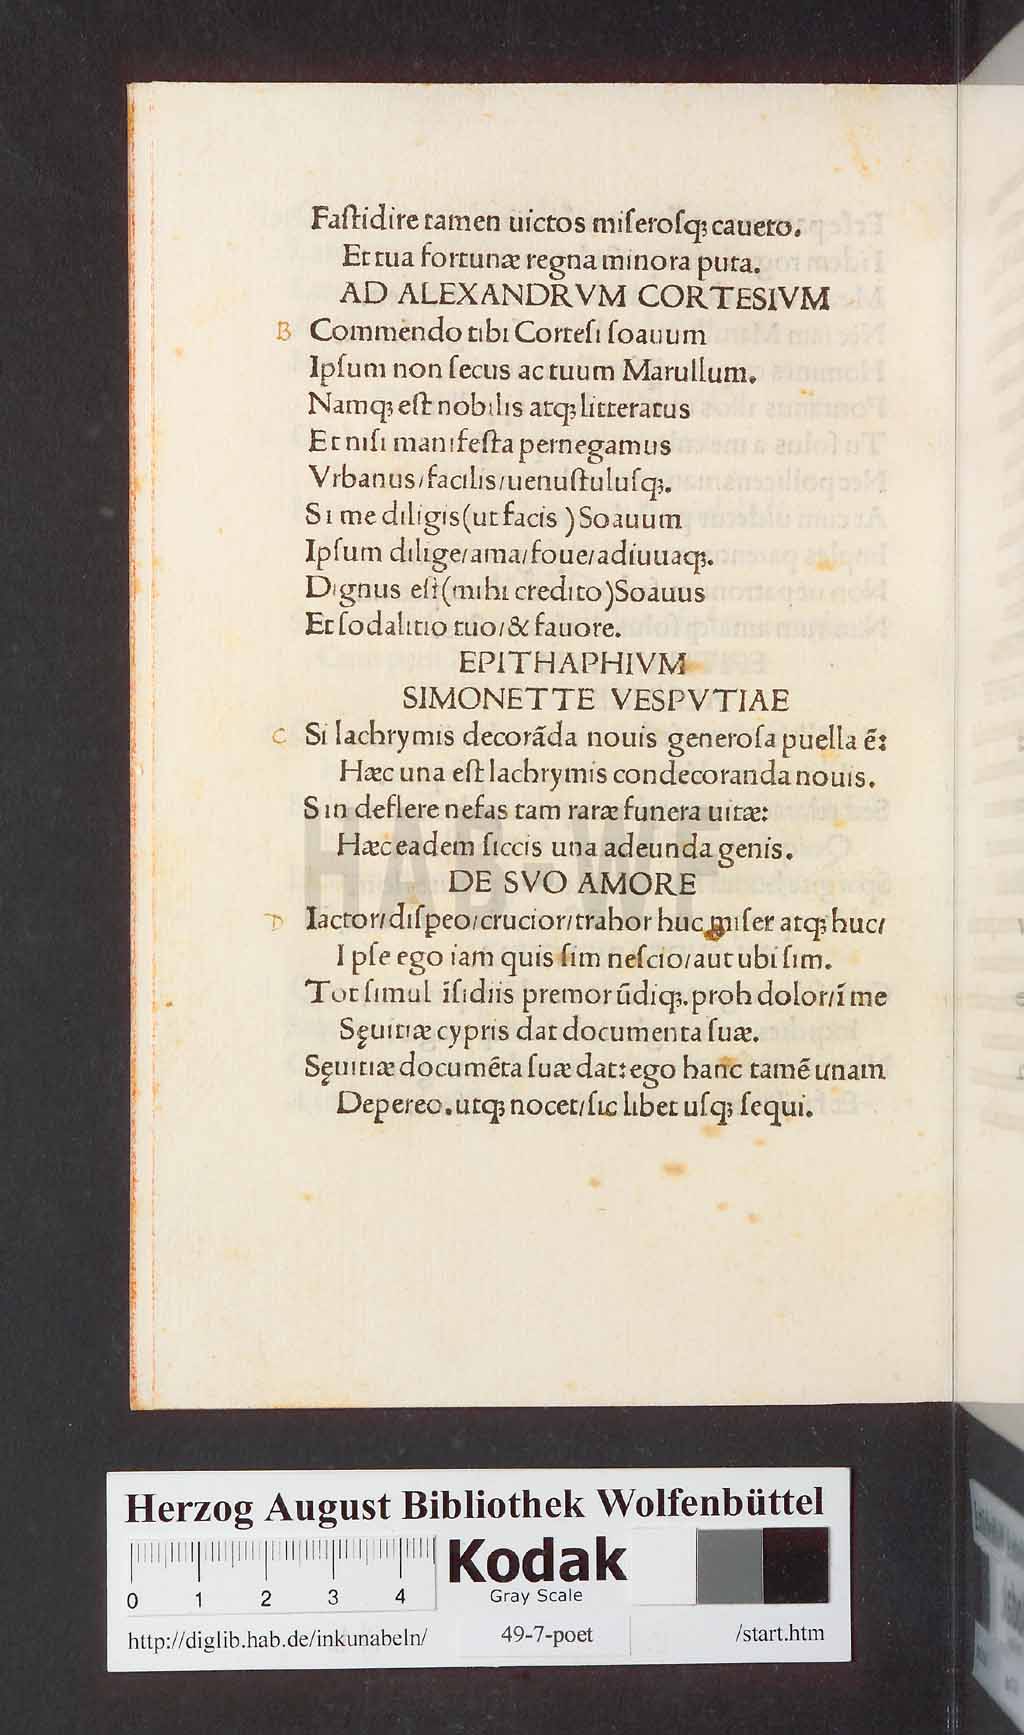 Faſtidire tamen uictos miſeroſq; caueto.
Et tua fortunæ regna minora puta.
AD ALEXANDRVM CORTESIVM
B Commendo tibi Corteſi ſoauum
Ipſum non ſecus ac tuum Marullum.
Namq; eſt nobilis atq; litteratus
Et niſi manifeſta pernegamus
Vrbanus/facilis/uenuſtuluſq;.
Si me diligis(ut facis )Soauum
Ipſum dilige/ama/foue/adiuuaq;.
Dignus eſt(mihi credito)Soauus
Et ſodalitio tuo/& fauore.
EPITHAPHIVM
SIMONETTE VESPVTIAE
C Si lachrymis decorāda nouis generoſa puella ē:
Hæc una eſt lachrymis condecoranda nouis.
Sin deflere nefas tam raræ funera uitæ:
Hæc eadem ſiccis una adeunda genis.
DE SVO AMORE
D Iactor/diſpeo/crucior/trahor huc miſer atq; huc/
Ipſe ego iam quis ſim neſcio/aut ubi ſim.
Tot ſimul īſidiis premor ūdiq;. proh dolor/ī me
Sęuitiæ cypris dat documenta ſuæ.
Sęuitiæ documēta ſuæ dat: ego hanc tamē unam
Depereo. utq; nocet/ſic libet uſq; ſequi.
HAB-WF
Herzog August Bibliothek Wolfenbüttel
0 1 2 3 4
Kodak
Gray Scale
http://diglib.hab.de/inkunabeln/ 49-7-poet /start.htm